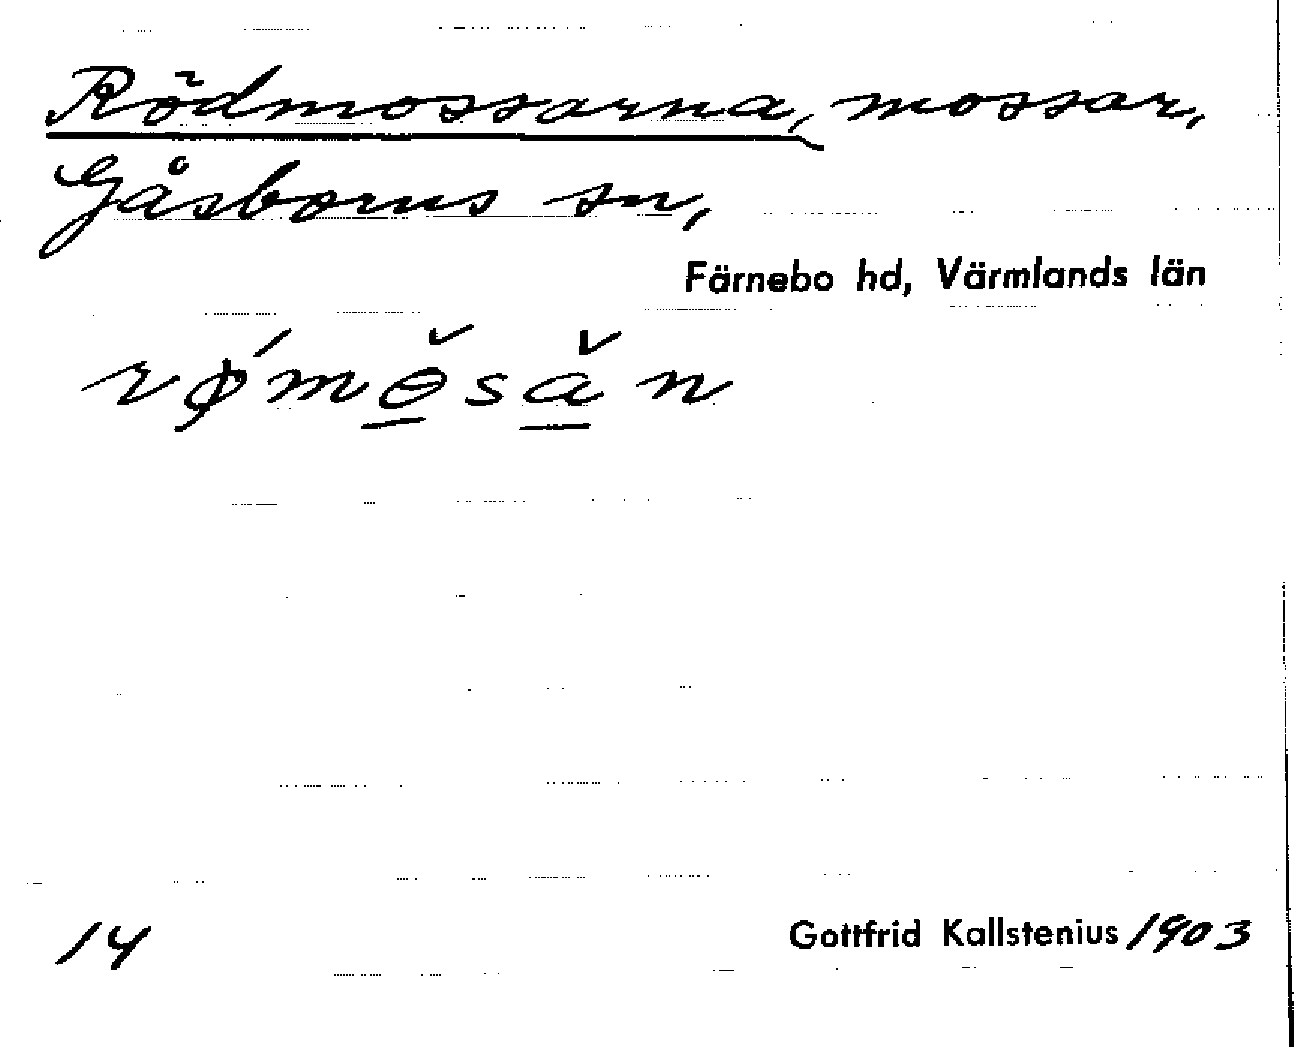 Rödmossarna, mossar,
Gåsborns sn,
Färnebo hd, Värmlands län
rǿmɵ̲̆să̲n
14
Gottfrid Kallstenius 1903